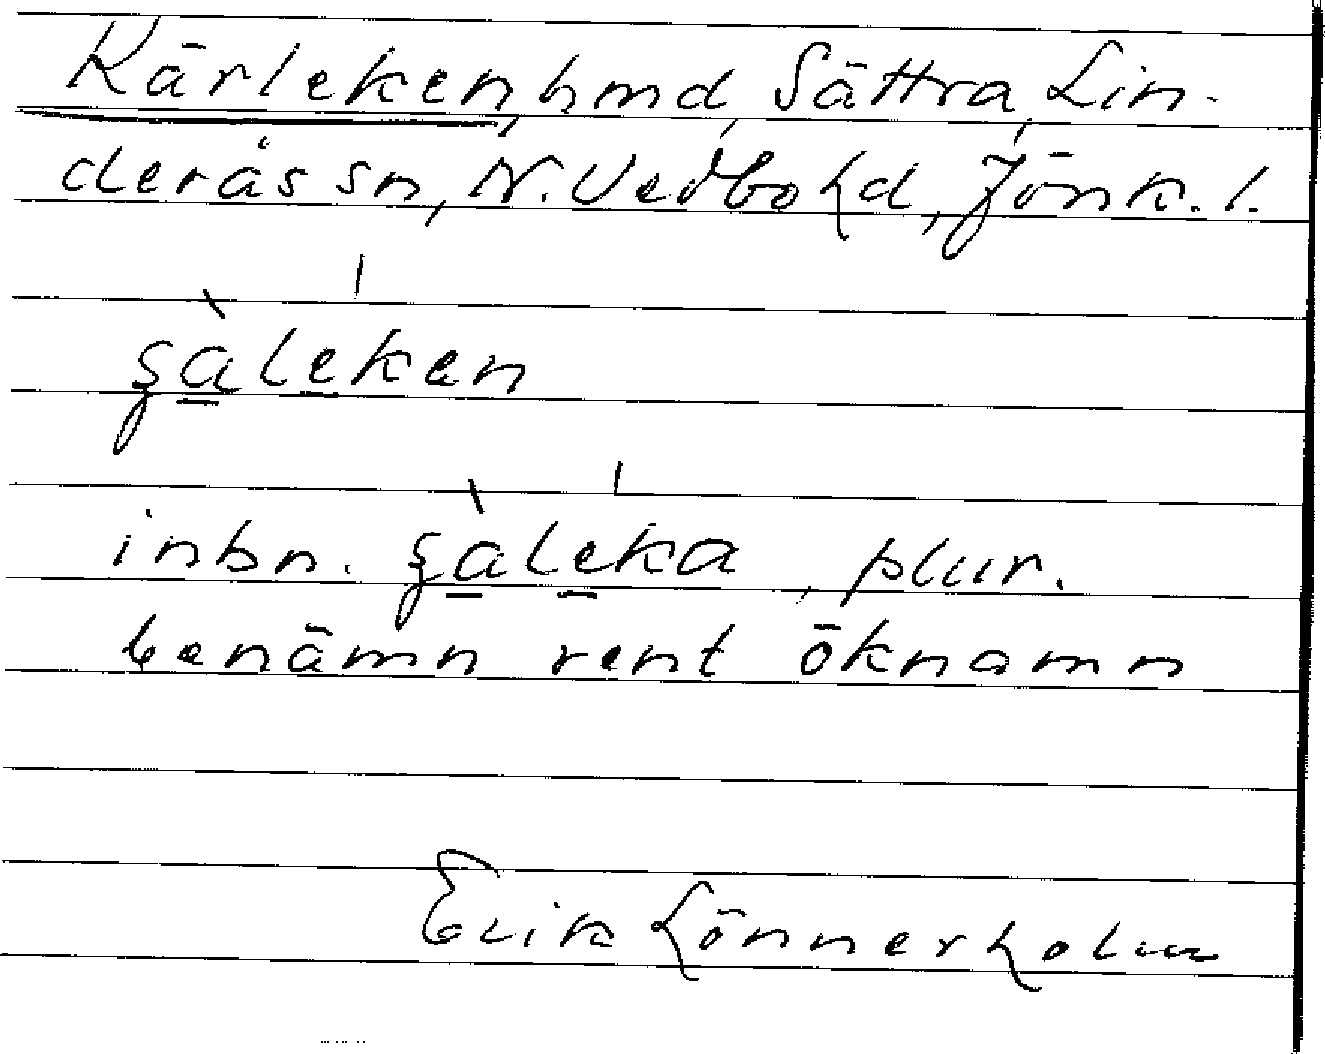 Kärleken, hmd, Sättra, Lin-
derås sn, N. Vedbo hd, Jönk. l.
şà̱le̱ken
inbn. şà̱le̱ka, plur.
benämn rent öknamn
Erik Lönnerholm